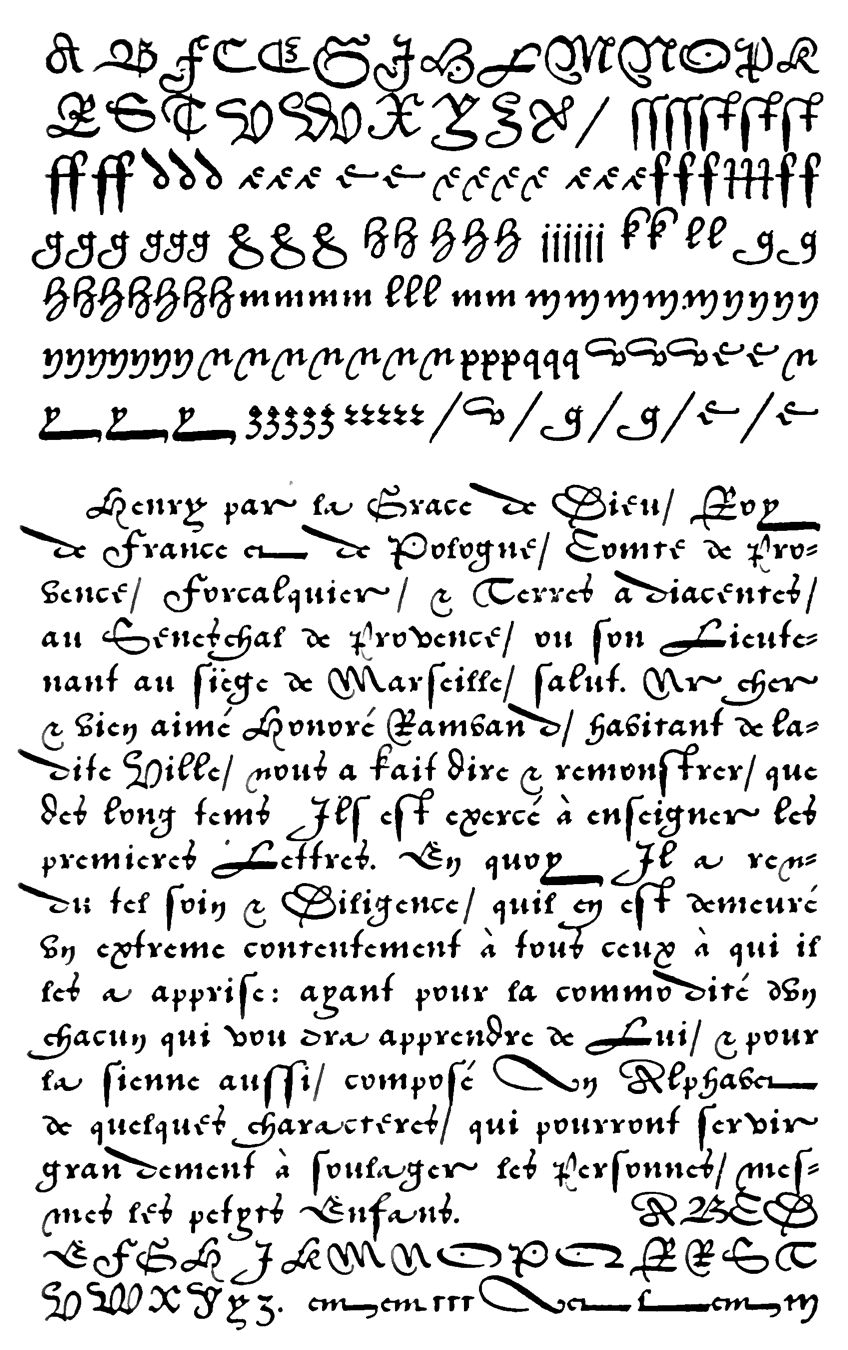 A B F C E G J H L M N O P R
R S T V W X Y Z & / ſſ ſſ ſt ſt ſt
ff ff d d d e e e e e e e e e e e e f f f f f
g g g g g g g g g h h h h h i i i i i i k k l l g g
h h h h h h h m m m m l l l m m
p p p q q q
y y y / / g / g / e / e
Henry par la Grace de Dieu/ Roy
de France et de Pologne/ Comte de Pro-
vence/ Forcalquier/ & Terres adiacentes/
au Seneschal de Provence/ ou son Lieute-
nant au siège de Marseille/ salut. Nr cher
& bien aimé Honoré Rambaud/ habitant de la-
dite Ville/ nous a fait dire & remonstrer/ que
des long tems Ils est exercé à enseigner les
premieres Lettres. En quoy Il a ren-
du tel soin & Diligence/ quil en est demeuré
vn extreme contentement à tous ceux à qui il
les a apprise: ayant pour la commodité dvn
chacun qui voudra apprendre de Lui/ & pour
la sienne aussi/ composé Vn Alphabet
de quelques characteres/ qui pourront servir
grandement à soulager les Personnes/ mes-
mes les petyts Enfans. A B C D
E F G H J K M N O P Q R R S T
V W X Y y z.